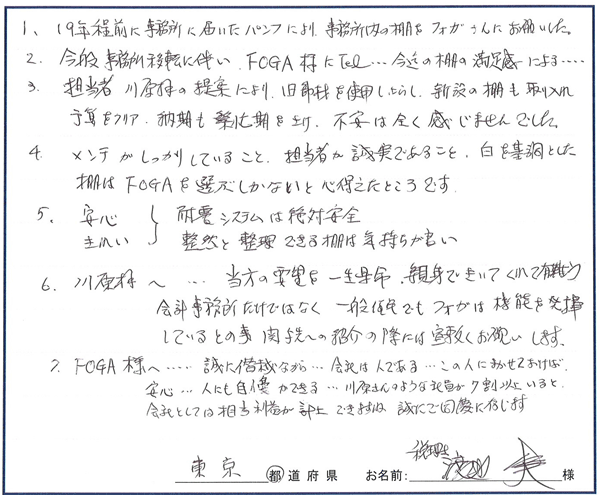 1、19年程前に事務所に届いたパンフにより、事務所内の棚をフォガさんにお願いした。
2. 今般事務所移転に伴い、FOGA様にTel…今迄の棚の満足感による‥‥
3. 担当者 川原様の提案により、旧部材を使用しながら、新設の棚も取り入れ
予算をクリア、納期も繁忙期を上げ、不安は全く感じませんでした。
4. メンテがしっかりしていること、担当者が誠実であること、白を基調とした
棚はFOGAを選ぶしかないと心得たところです。
5. 安心 耐震システムは絶対安全
きれい 整然と整理できる棚は気持ちが良い
6. 川原様へ … 当方の要望を一生懸命、親身できいてくれて有難う
会計事務所だけではなく 一般住宅でもフォガは機能を発揮
しているとの事 関与先への紹介の際には宜敷くお願いします。
7. FOGA様へ‥‥ 誠に僭越ながら… 会社は人である…この人にまかせておけば、
安心…人にも自慢ができる…川原さんのような社員が7割以上いると、
会社としては相当利益が計上できますね 誠にご同慶に存じます
東京 都道府県 お名前: 税理士 様